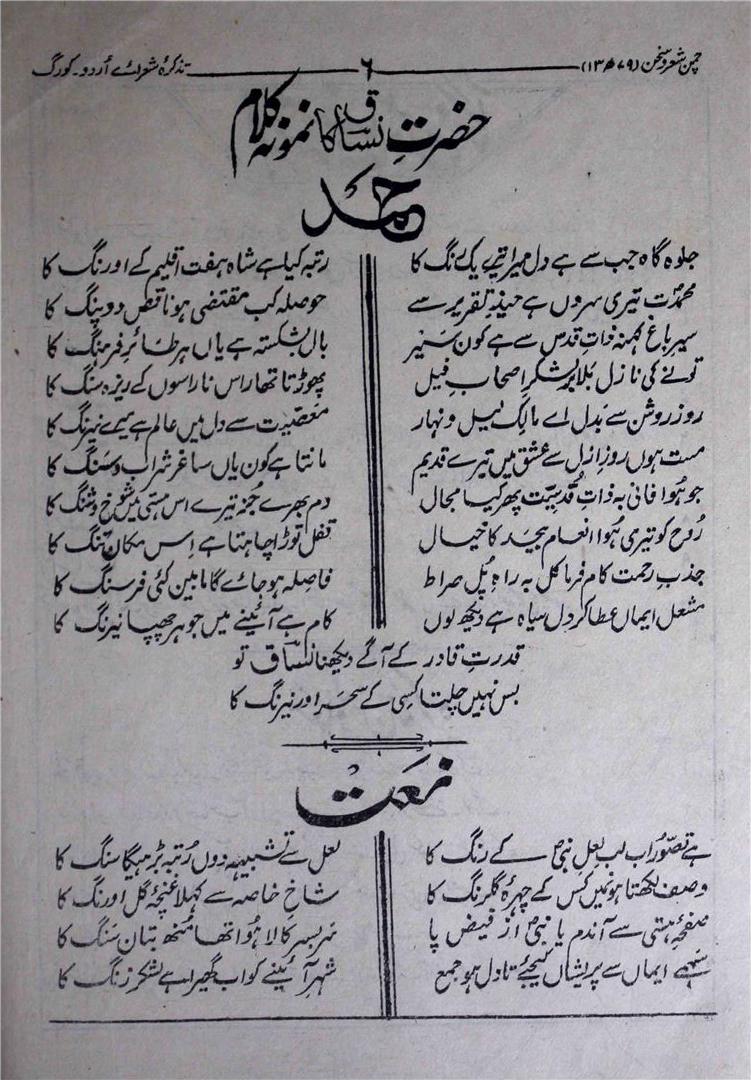 چمن شعر و سخن (۱۳۷۹ھ) ۶ تذکرۂ شعرائے اُردو۔ کورگ
حضرتِ نساق کا نمونۂ کلام
حمد
جلوہ گاہ جب سے ہے دل میرا تیرے یک رنگ کا رتبہ کیا ہے شاہ ہفت اقلیم کے اورنگ کا
محمدت تیری سروں ہے تقریر سے حوصلہ کب مقتضی ہو ناقص دوپنگ کا
سیر باغ کہنہ ذاتِ قدس سے ہے کون سیر بال بشکستہ ہے یاں ہر طائرِ فرہنگ کا
تونے کی نازل بَلا بر لشکرِ اصحابِ فیل پھوڑتا تھا راس ناراسوں کے ریزہ سنگ کا
روز روشن سے بدل اے مالِک لیل و نہار معصیت سے دل میں عالم ہے میرے نیرنگ کا
مست ہوں روزِ ازل سے عشق میں تیرے قدیم مانتا ہے کون یاں ساغر شراب و سنگ کا
جو ہوا فانی بہ ذاتِ قدسیت پھر کیا مجال دم بھرے جُز تیرے اس ہستی میں شوخ و شنگ کا
رُوح کو تیری ہُوا انعام بیحد کا خیال قفل توڑا چاہتا ہے اِس مکانِ تنگ کا
جذبِ رحمت کام فرما کل بہ راہِ پُل صراط فاصلہ ہو جائے گا مابین کئی فرسنگ کا
مشعل ایماں عطا کر دل سیاہ ہے دیکھ لوں کام ہے آئینے میں جوہر چھپا نیرنگ کا
قدرتِ قادر کے آگے دیکھنا نساق تو
بس نہیں چلتا کسی کے سحر اور نیرنگ کا
نعت
ہے تصوّر اب لبِ لعل نبیؐ کے رنگ کا لعل سے تشبیہہ دوں رُتبہ بڑھیگا سنگ کا
وصف لکھتا ہوں میں کس کے چہرۂ گلرنگ کا شاخِ خاصہ سے کھلا غنچۂ گل اورنگ کا
صفحۂ ہستی سے آندم یا نبیؐ از فیض پا سربسر کالا ہُوا تھا مُنھ بتانِ سنگ کا
ایماں سے پریشاں کیجئے تا دل ہو جمع شہر آئینے کو اب گھیرا ہے لشکر زنگ کا